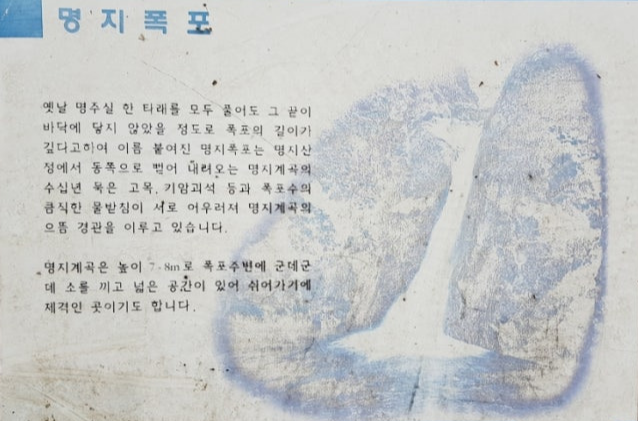 명지폭포
옛날 명주실 한 타래를 모두 풀어도 그 끝이
바닥에 닿지 않았을 정도로 폭포의 깊이가
깊다고하여 이름 붙여진 명지폭포는 명지산
정에서 동쪽으로 뻗어 내려오는 명지계곡의
수십년 묵은 고목, 기암괴석 등과 폭포수의
큼직한 물받침이 서로 어우러져 명지계곡의
으뜸 경관을 이루고 있습니다.
명지계곡은 높이 7~8m로 폭포주변에 군데군
데 소를 끼고 넓은 공간이 있어 쉬어가기에
제격인 곳이기도 합니다.